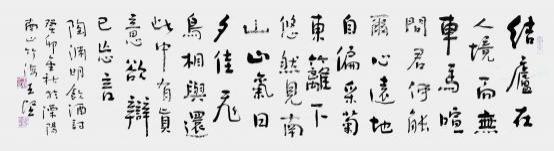 結廬在
人境而無
車馬喧
問君何能
爾心遠地
自偏采菊
東籬下
悠然見南
山山氣日
夕佳飛
鳥相與還
此中有真
意欲辯
已忘言
陶淵明飲酒詩
癸卯金秋於溧陽
南山竹海